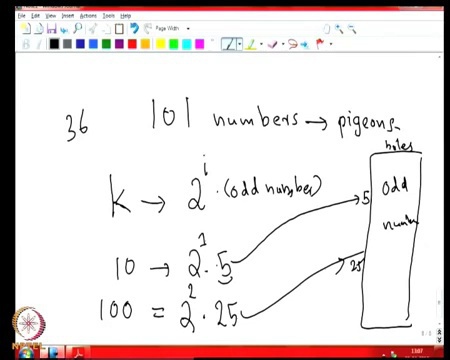 File Edit View Insert Actions Tools Help
Page Width
36 101 numbers → pigeons
holes
K → 2^i · (odd number)
5 odd
10 → 2^1 · 5
25
100 = 2^2 · 25
13:07